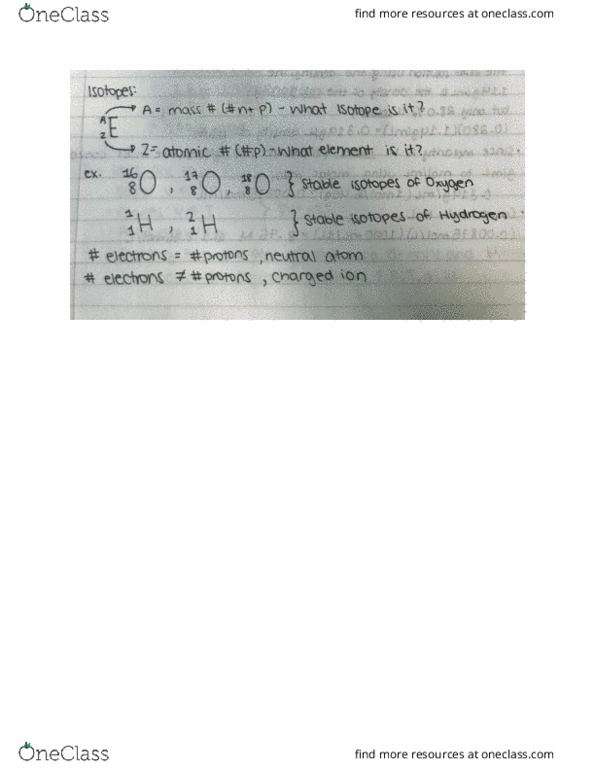 OneClass
find more resources at oneclass.com
Isotopes:
A = mass # (#n+p) - What isotope is it?
A Z E
Z = atomic # (#p) - What element is it?
ex. 16 8 O , 17 8 O , 18 8 O } Stable isotopes of Oxygen
1 1 H , 2 1 H } Stable isotopes of Hydrogen
# electrons = # protons , neutral atom
# electrons ≠ # protons , charged ion
OneClass
find more resources at oneclass.com